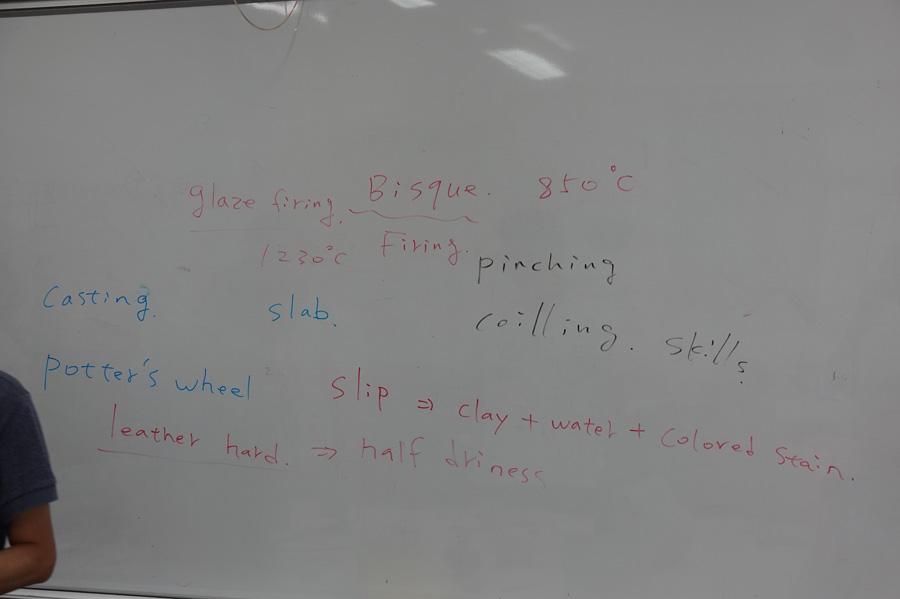 glaze firing. Bisque. 850°C
1230°C Firing.
pinching
Casting. slab. coilling. skills.
potter's wheel slip ⇒ clay + water + Colored stain.
leather hard. ⇒ half driness